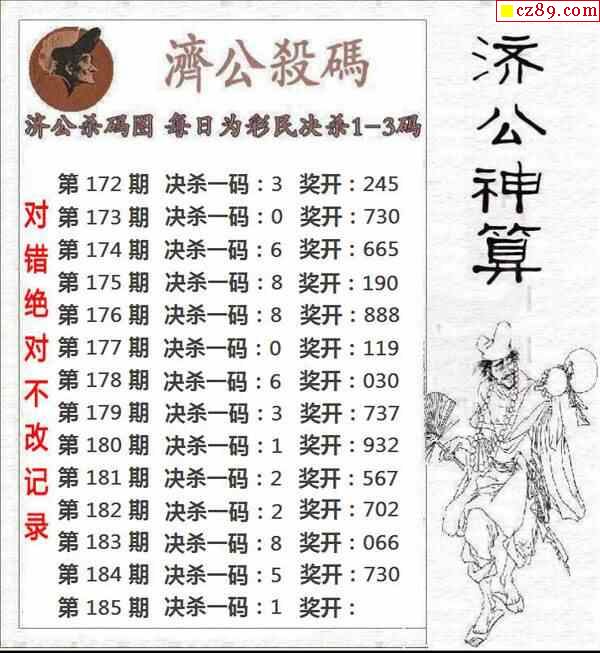 cz89.com
濟公殺碼
济公杀码图 每日为彩民决杀1-3码
第 172 期 决杀一码：3 奖开：245
第 173 期 决杀一码：0 奖开：730
第 174 期 决杀一码：6 奖开：665
第 175 期 决杀一码：8 奖开：190
第 176 期 决杀一码：8 奖开：888
第 177 期 决杀一码：0 奖开：119
第 178 期 决杀一码：6 奖开：030
第 179 期 决杀一码：3 奖开：737
第 180 期 决杀一码：1 奖开：932
第 181 期 决杀一码：2 奖开：567
第 182 期 决杀一码：2 奖开：702
第 183 期 决杀一码：8 奖开：066
第 184 期 决杀一码：5 奖开：730
第 185 期 决杀一码：1 奖开：
对错绝对不改记录
济公神算